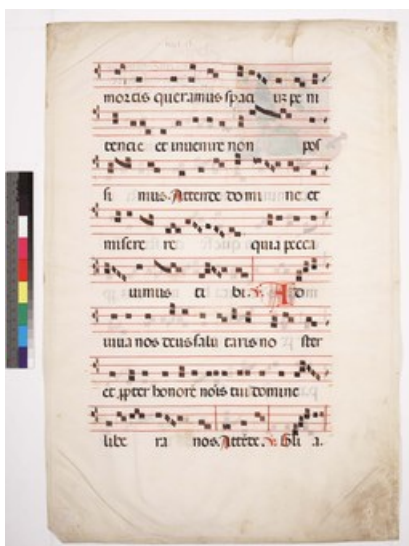 mortis queramus spaci um pe ni
tencie et invenire non pos
si mus. Attende domi ne et
misere re quia pecca
vimus ti bi. V. Ad
iuva nos deus salu taris no ster
et ꝓpter honorē nōis tui domine
libe ra nos. Attēde. V. Gli a.